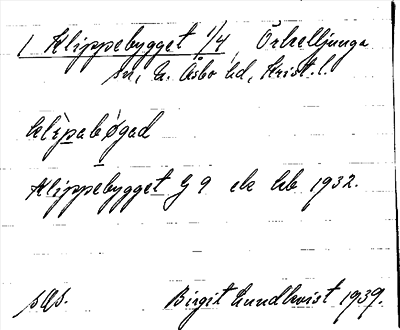 1 Klippebygget 1/4, Örkelljunga
sn, N. Åsbo hd, Krist. l.
klìpabø̀gad
Klippebygget G 9 ek kb 1932.
sgs. Birgit Lundkvist 1939.